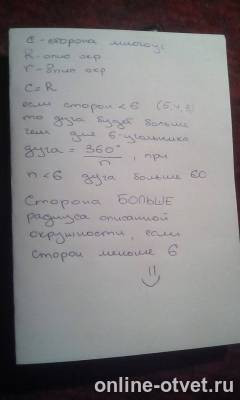 C - сторона многоу.
R - опис окр
r - впис окр
C = R
если сторон < 6 (5, 4, 3)
то дуга будет больше
чем для 6-угольника
дуга = 360° / n, при
n < 6 дуга больше 60
Сторона БОЛЬШЕ
радиуса описанной
окружности, если
сторон меньше 6
=)
online-otvet.ru